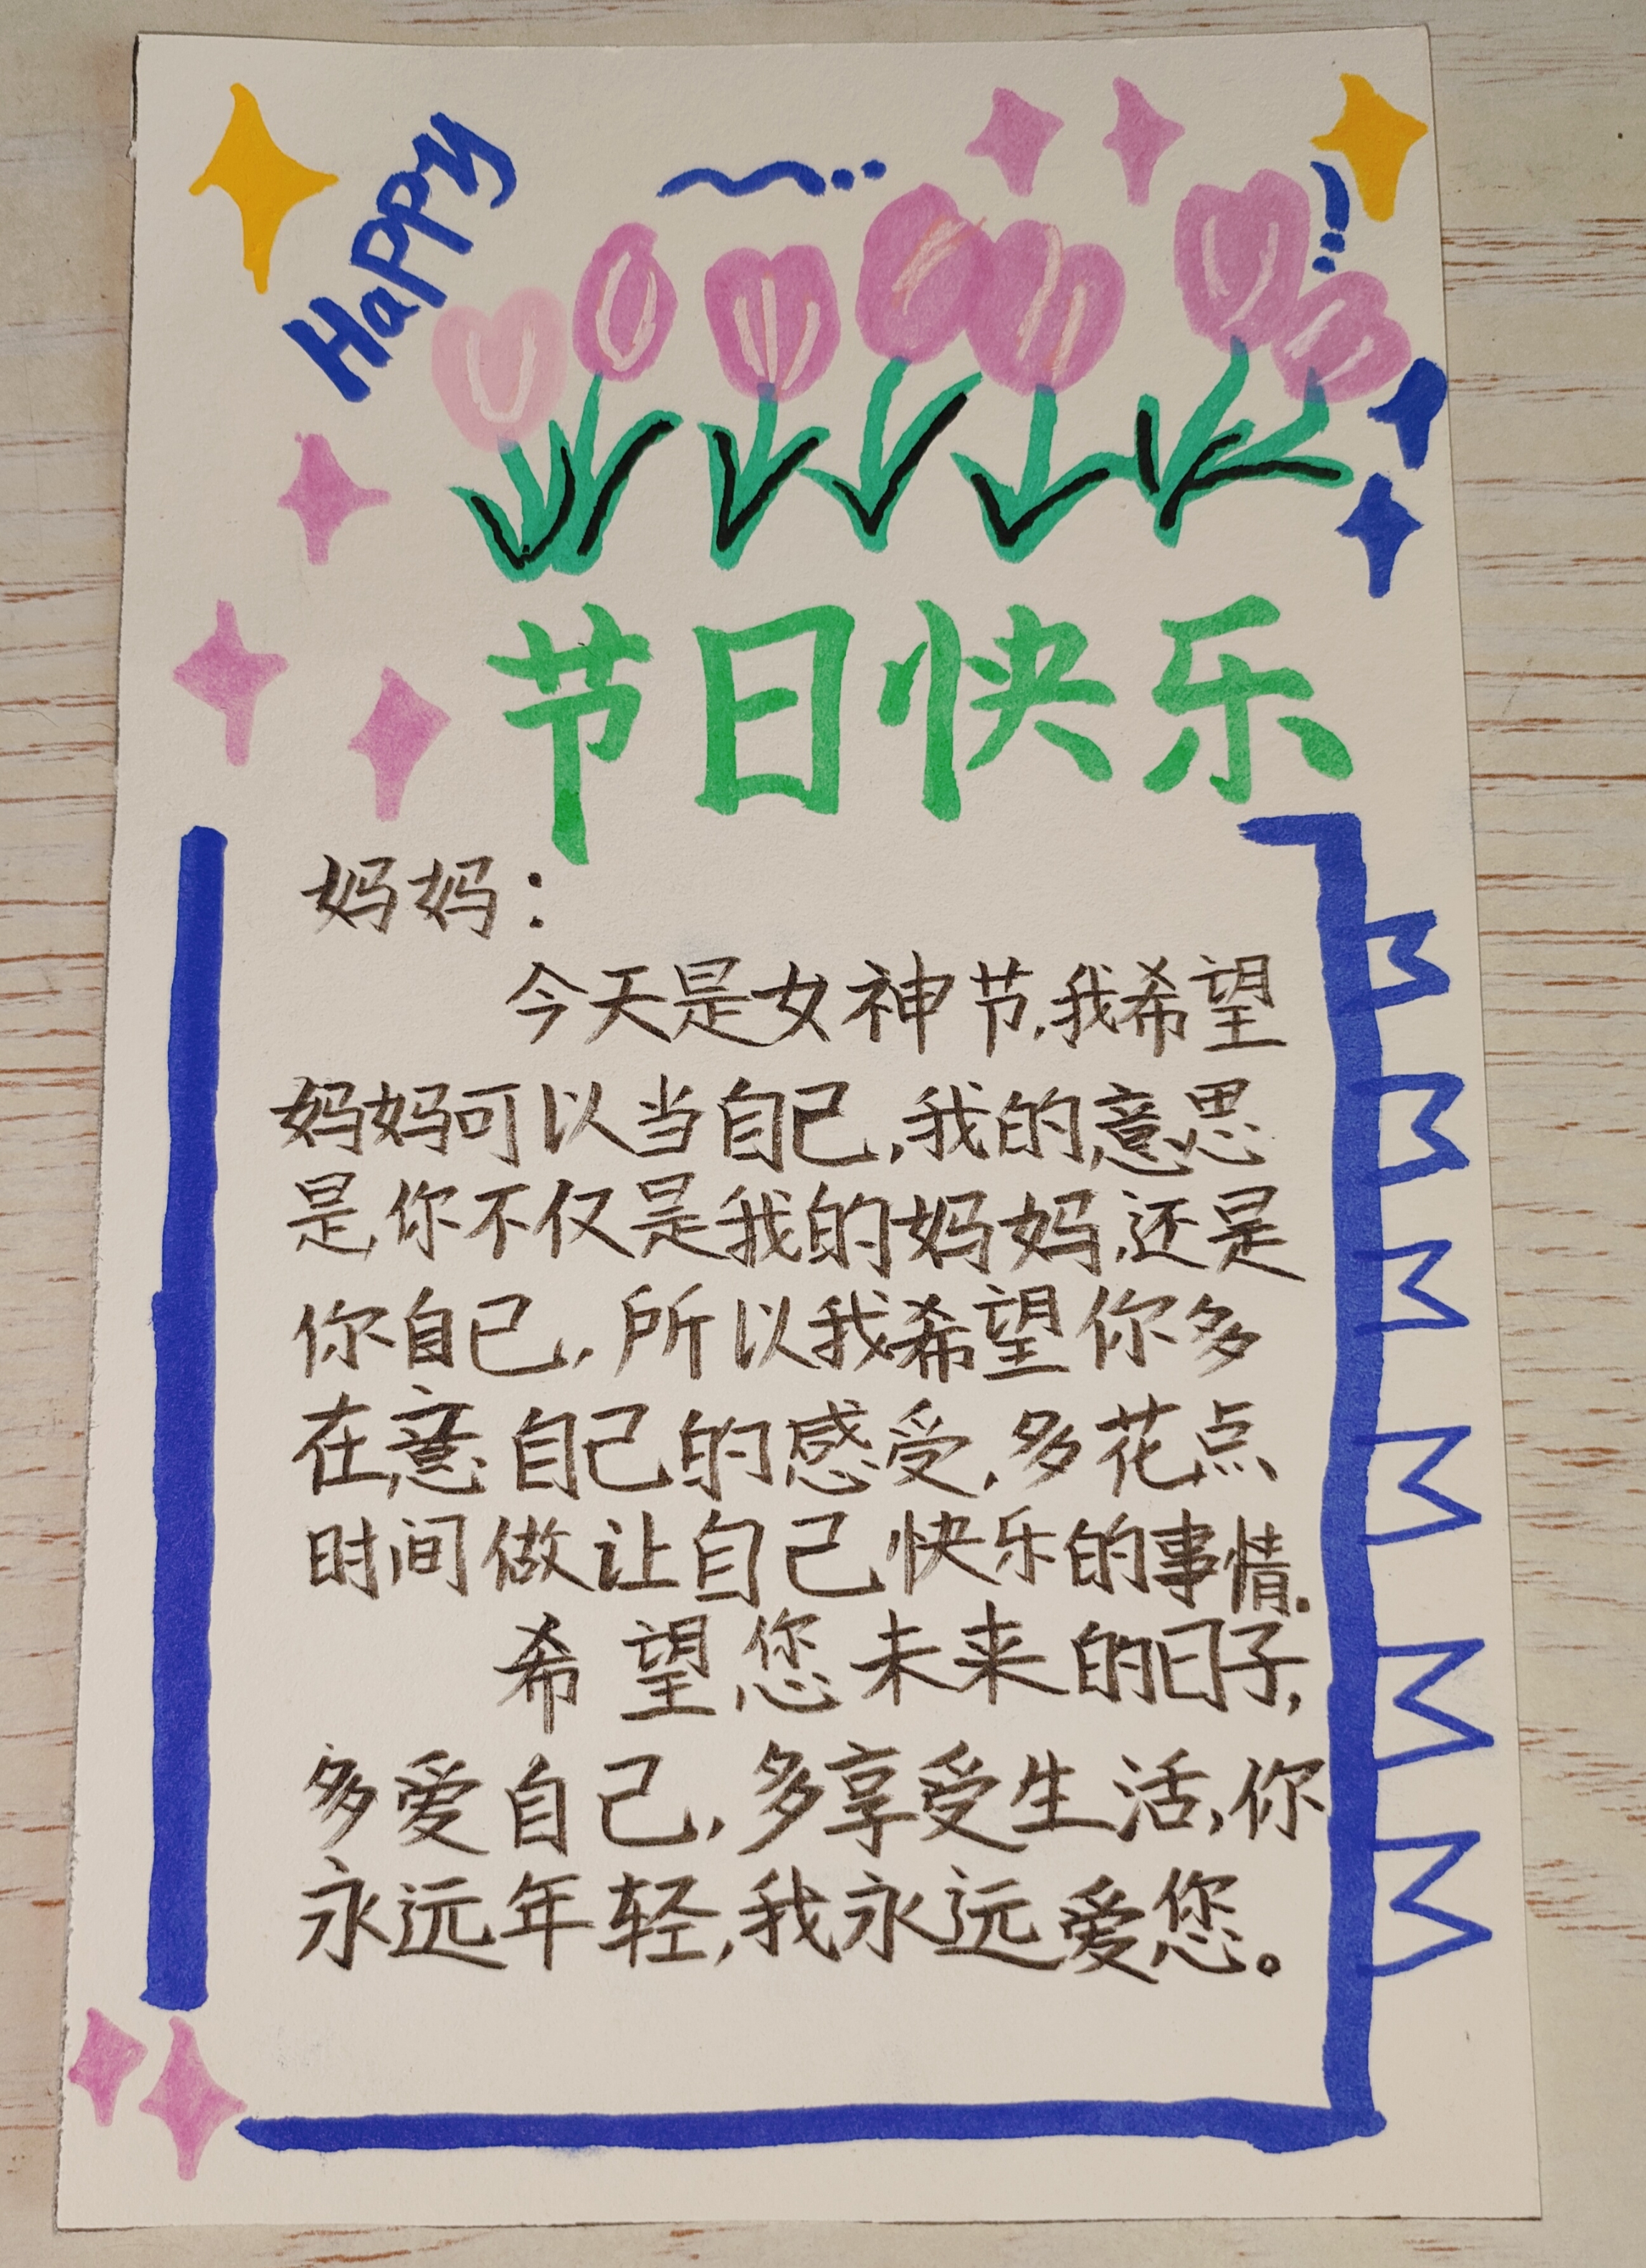 Happy
节日快乐
妈妈：
今天是女神节，我希望
妈妈可以当自己，我的意思
是你不仅是我的妈妈，还是
你自己，所以我希望你多
在意自己的感受，多花点
时间做让自己快乐的事情.
希望您未来的日子，
多爱自己，多享受生活，你
永远年轻，我永远爱您。